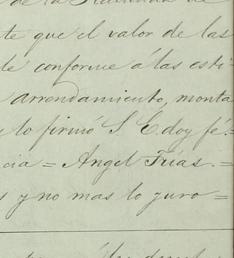 de la Hacienda de
te que el valor de las
de conforme á las esti
arrendamiento, monta
y lo firmó S. E. doy fé.
cia = Angel Frías. =
s y no mas lo juro =